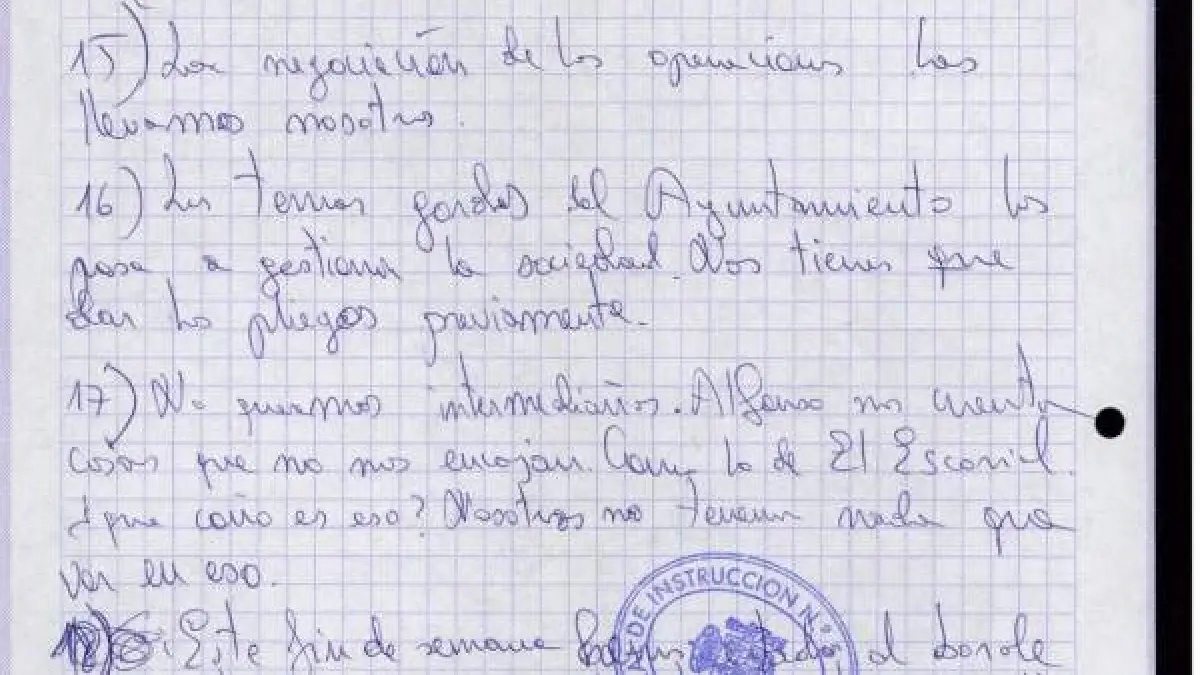 15) La negociación de los operaciones las
llevamos nosotros.
16) Los temas gordos del Ayuntamiento los
pasa a gestionar la sociedad. Nos tienes que
dar los pliegos previamente.
17) No queremos intermediarios. Alfonso nos cuenta
cosas que no nos encajan. Como lo de El Escorial.
¿que coño es eso? Nosotros no tenemos nada que
ver en eso.
18) Este fin de semana al donde
DE INSTRUCCION N.º